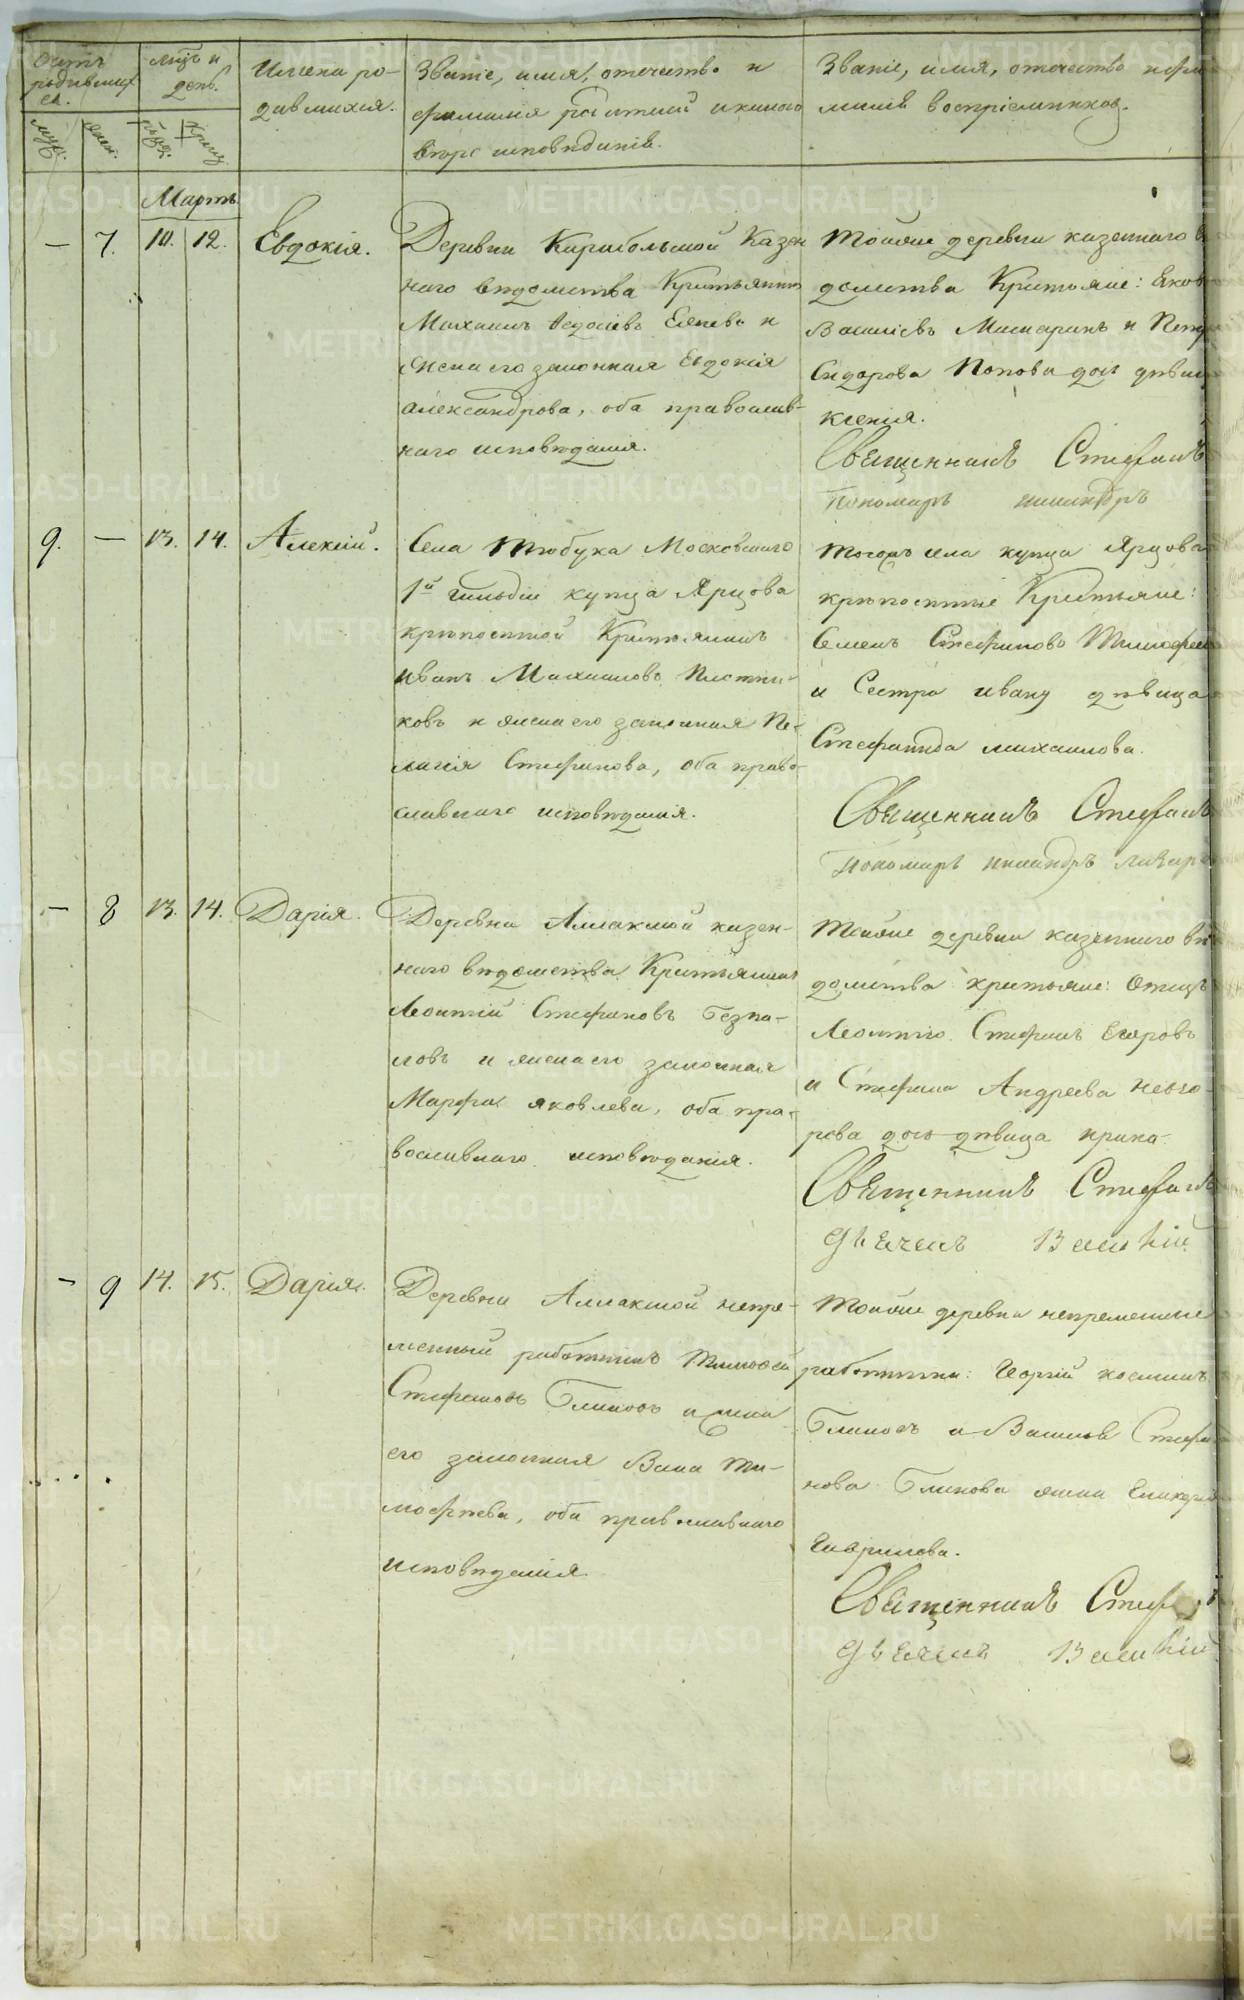 Счетъ родившихся.
муж.
жен.
мѣсц. и день.
рожд.
крещ.
Имена родившихся.
Званіе, имя, отечество и
фамилія родителей и какого
вѣроисповѣданія.
Званіе, имя, отечество и фа-
милія воспріемниковъ.
Мартъ
— 7. 10. 12. Евдокія.
Деревни Карабольской Казен
наго вѣдомства Крестьянинъ
Михаилъ Ѳедосіевъ и
жена его законная Евдокія
Александрова, оба православ-
наго исповѣданія.
Тойже деревни казеннаго вѣ
домства Крестьяне: Яковъ
Василіевъ и Петра
Сидорова Попова дочь дѣвица
Ксенія.
Священникъ Стефанъ
Пономарь
9. — 13. 14. Алексій.
Села Тюбука Московскаго
1й гильдіи купца Ярцова
крѣпостной Крестьянинъ
Иванъ Михаиловъ
ковъ и жена его законная Пе-
лагія Стефанова, оба право-
славнаго исповѣданія.
Тогожъ села купца Ярцова
крѣпостные Крестьяне:
Семенъ Стефановъ
и Сестра Ивану дѣвица
Стефанида Михаилова.
Священникъ Стефанъ
Пономарь
— 8 13. 14. Дарія.
Деревни казен-
наго вѣдомства Крестьянинъ
Леонтій Стефановъ
ловъ и жена его законная
Марфа Яковлева, оба пра-
вославнаго исповѣданія.
Тойже деревни казеннаго вѣ
домства крестьяне: Отецъ
Леонтію Стефанъ Егоровъ
и Стефана Андреева
рова дочь дѣвица Ирина.
Священникъ Стефанъ
Дьячекъ
— 9 14. 15. Дарія.
Деревни непре-
менный работникъ Тимоѳей
Стефановъ Блиновъ и жена
его законная Васса Ти-
мофѣева, оба православнаго
исповѣданія.
Тойже деревни непременные
работники: Георгій Косминъ
Блиновъ и Василія Стефа
нова Блинова жена
Гаврилова.
Священникъ
Дьячекъ
METRIKI.GASO-URAL.RU